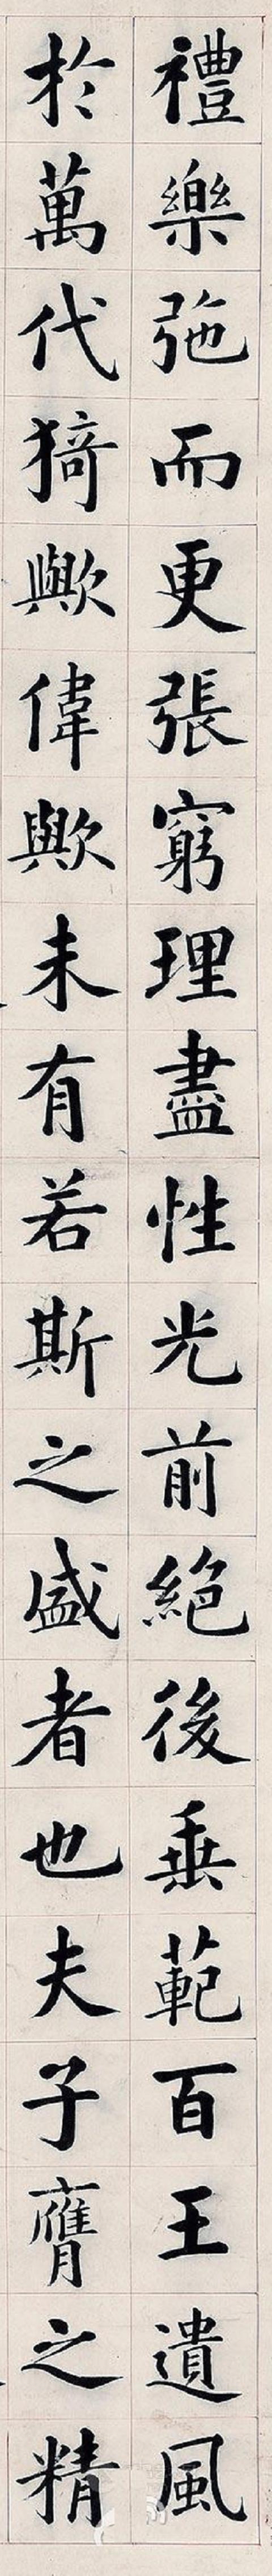 禮樂弛而更張窮理盡性光前絕後垂範百王遺風
於萬代猗歟偉歟未有若斯之盛者也夫子膺之精